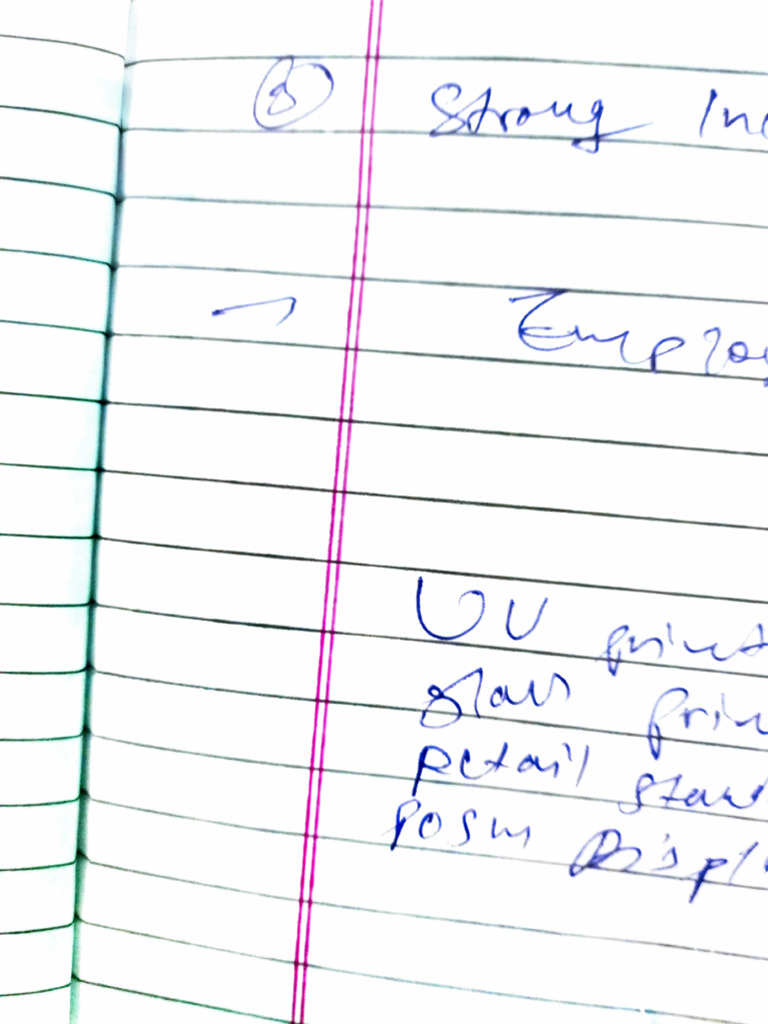 ③ Strong Inc
Employ
UV print
glass prin
retail stand
POSM Displ